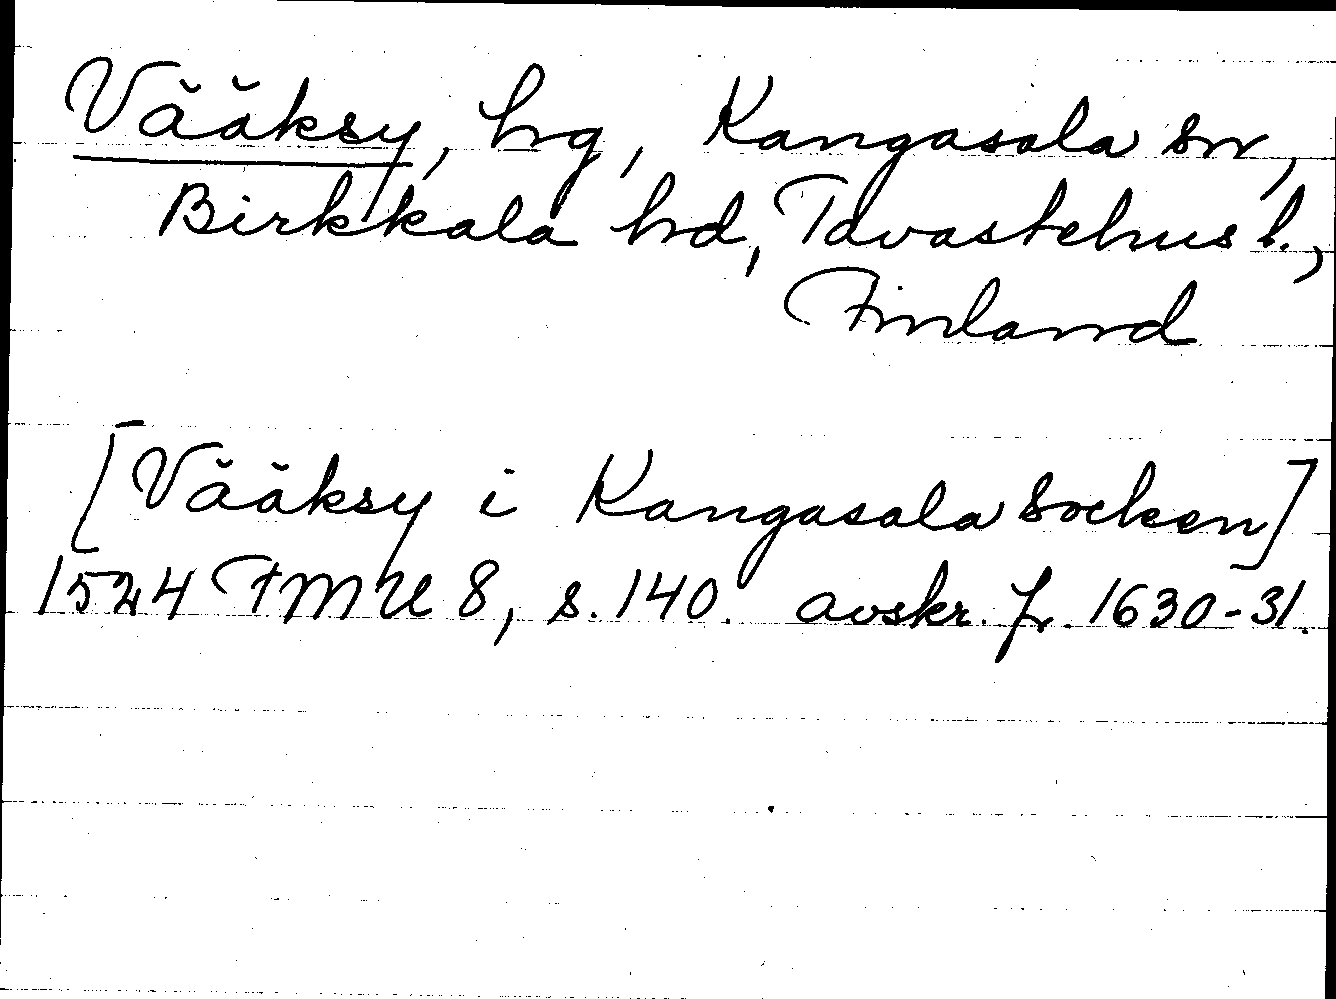 Vääksy, hg, Kangasala sn,
Birkkala hd, Tavastehus l.,
Finland
[Vääksy i Kangasala socken]
1524 FMU 8, s. 140. avskr. fr. 1630-31.